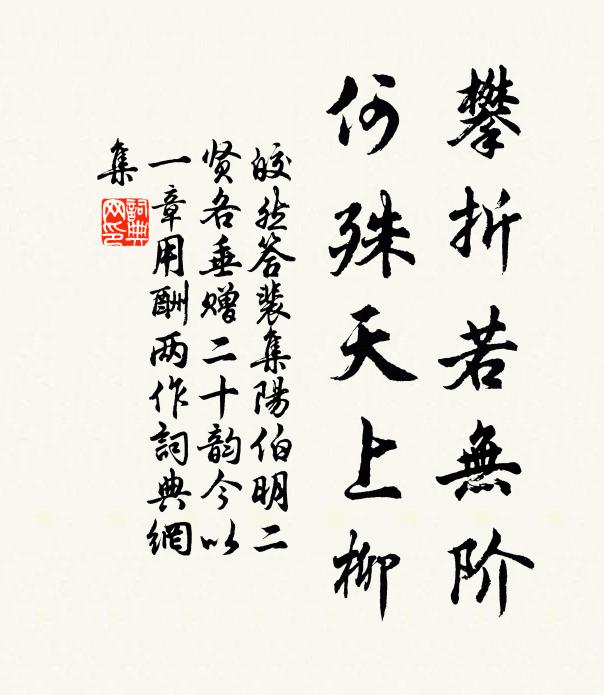 攀折若無阶
何殊天上柳
皎然答裴集陽伯明二
贤各垂赠二十韵今以
一章用酬两作詞典網
集
詞典
网印